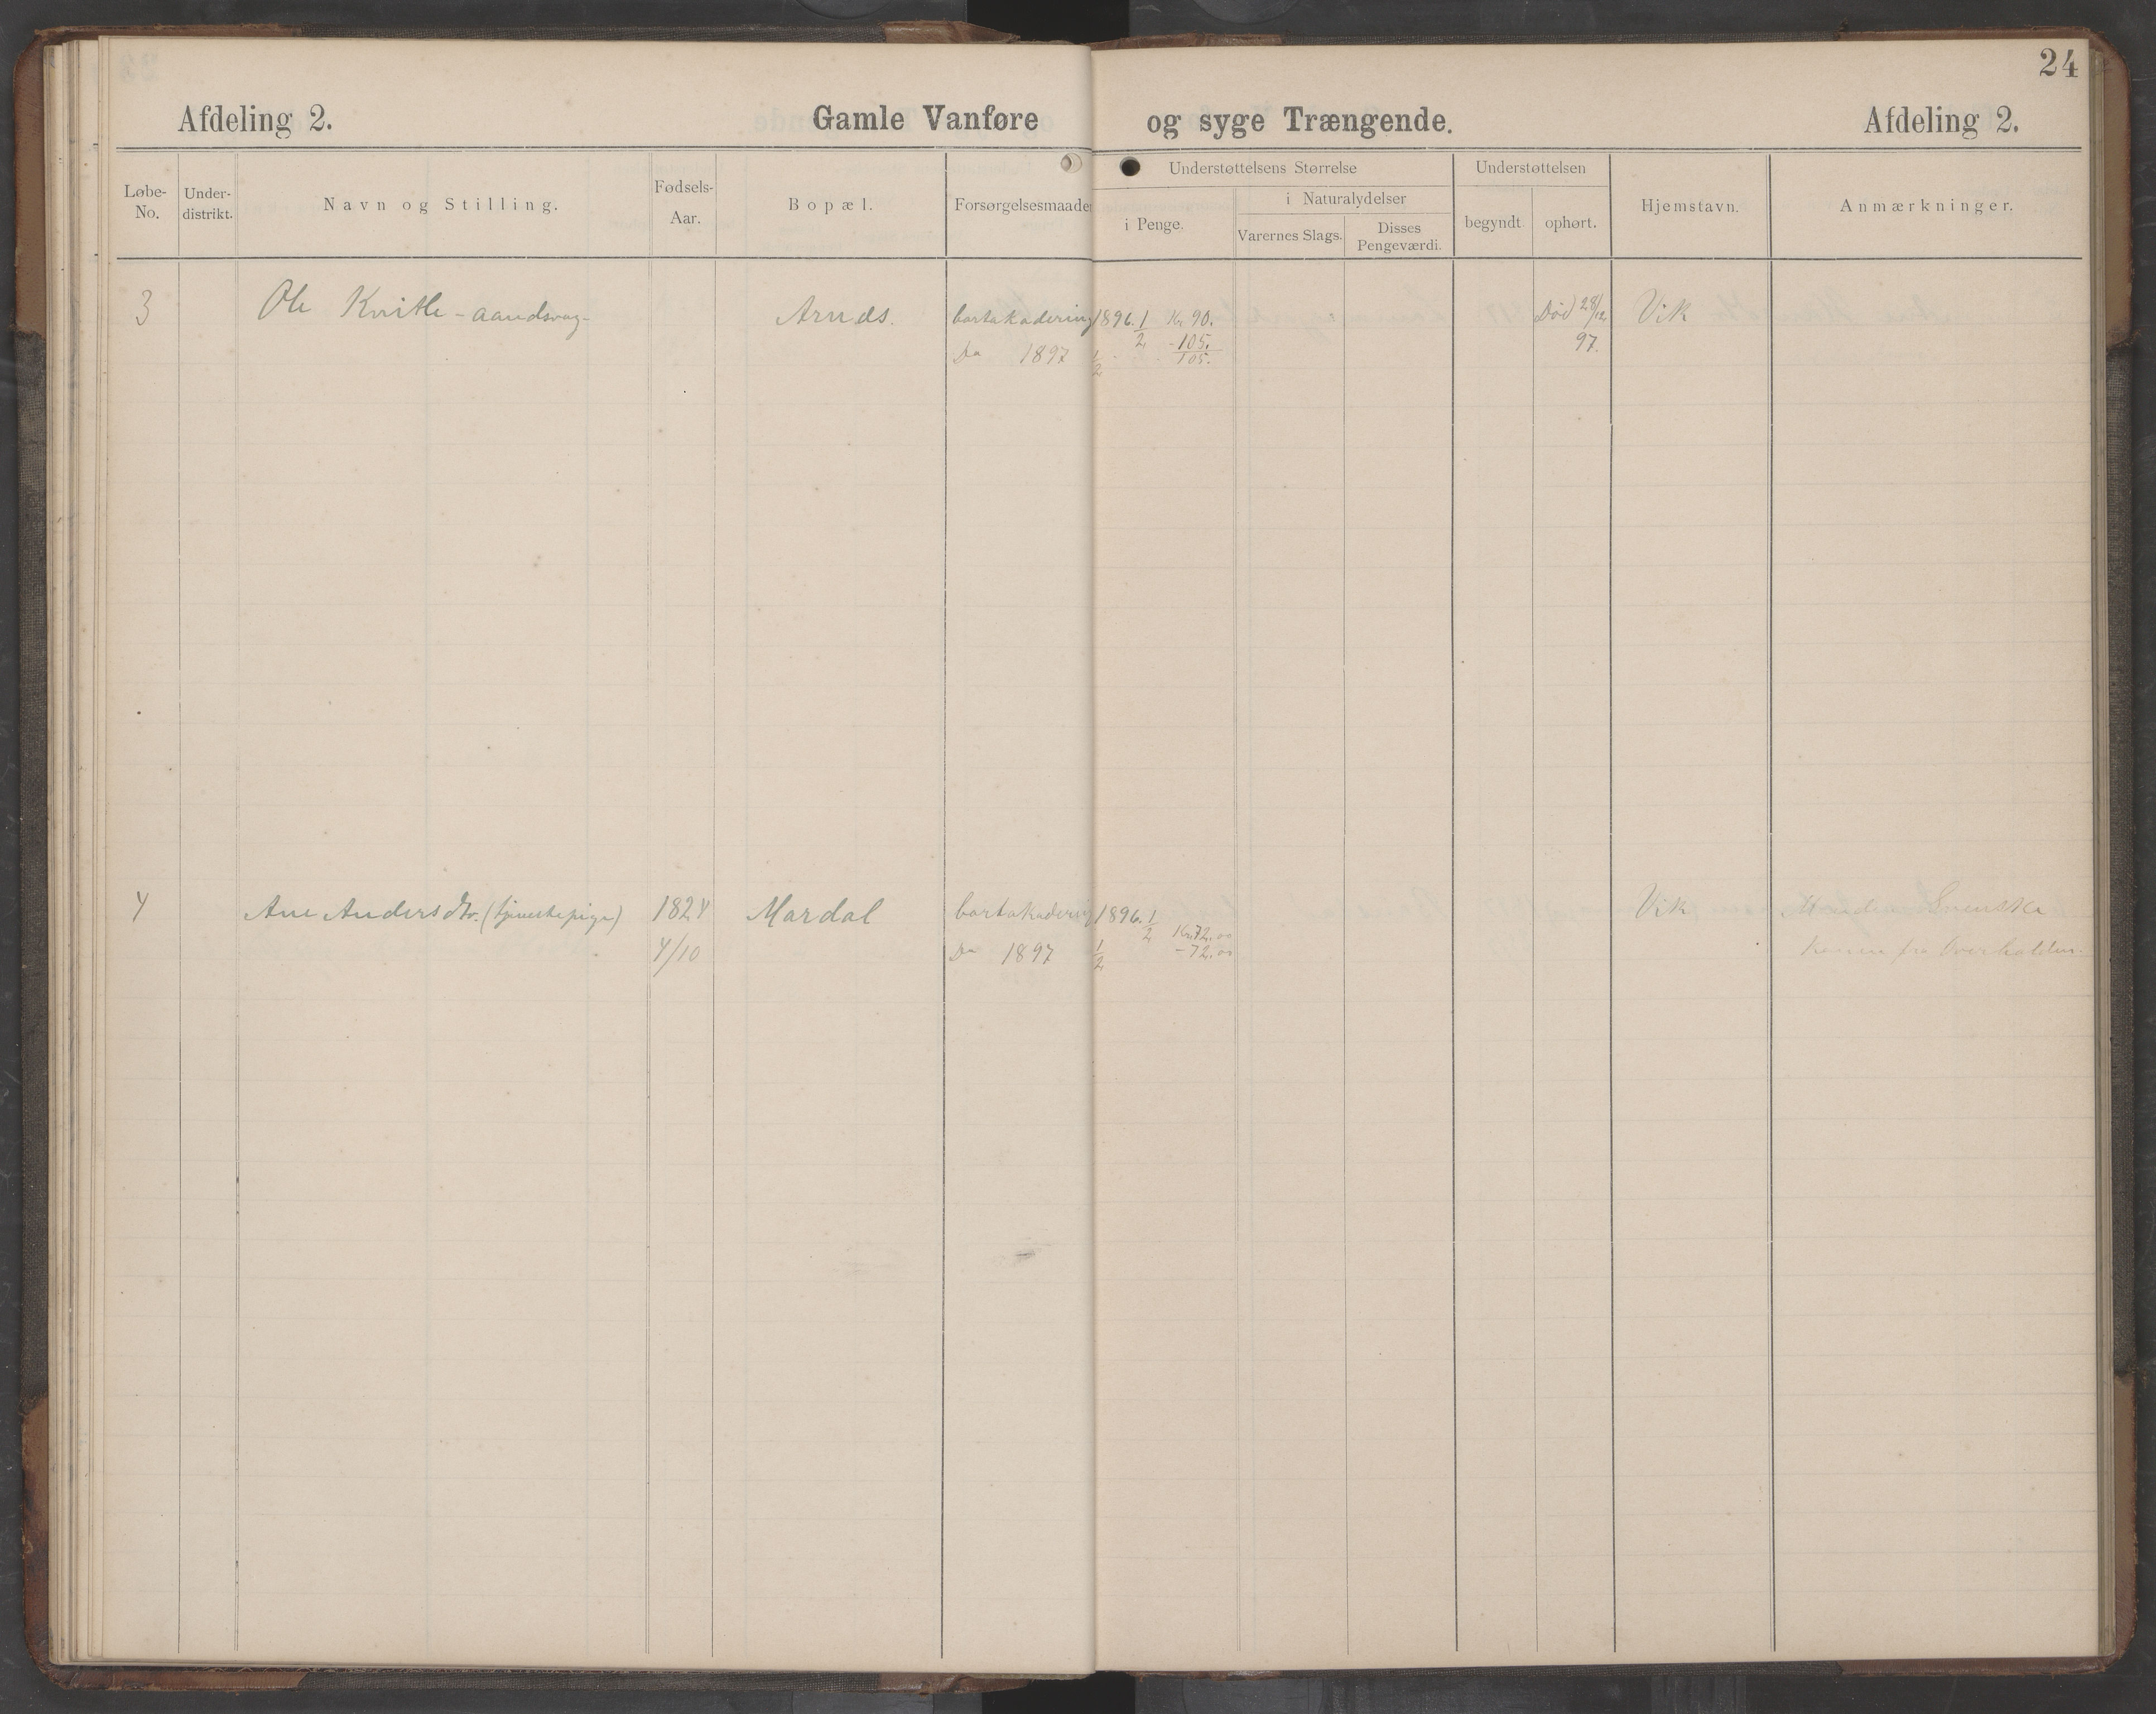 24
Afdeling 2. Gamle Vanføre og syge Trængende. Afdeling 2.
Løbe-No. Under-distrikt. Navn og Stilling. Fødsels-Aar. Bopæl. Forsørgelsesmaaden Understøttelsens Størrelse Understøttelsen Hjemstavn. Anmærkninger.
i Penge. i Naturalydelser begyndt. ophørt.
Varernes Slags. Disses Pengeværdi.
3 Ole Kvitle - aandsvag - Arnds. bortakadering 1896. 1/2 Kr 90. Død 28/12 Vik
- 105. 97.
Do 1897 1/2 105.
4 Ane Andersdtr. (tjenestepige) 1824 Mardal bortakadering 1896. 1/2 Kr. 72.00 Vik Svenske
4/10 Do 1897 1/2 - 72.00 fra Overhalden.